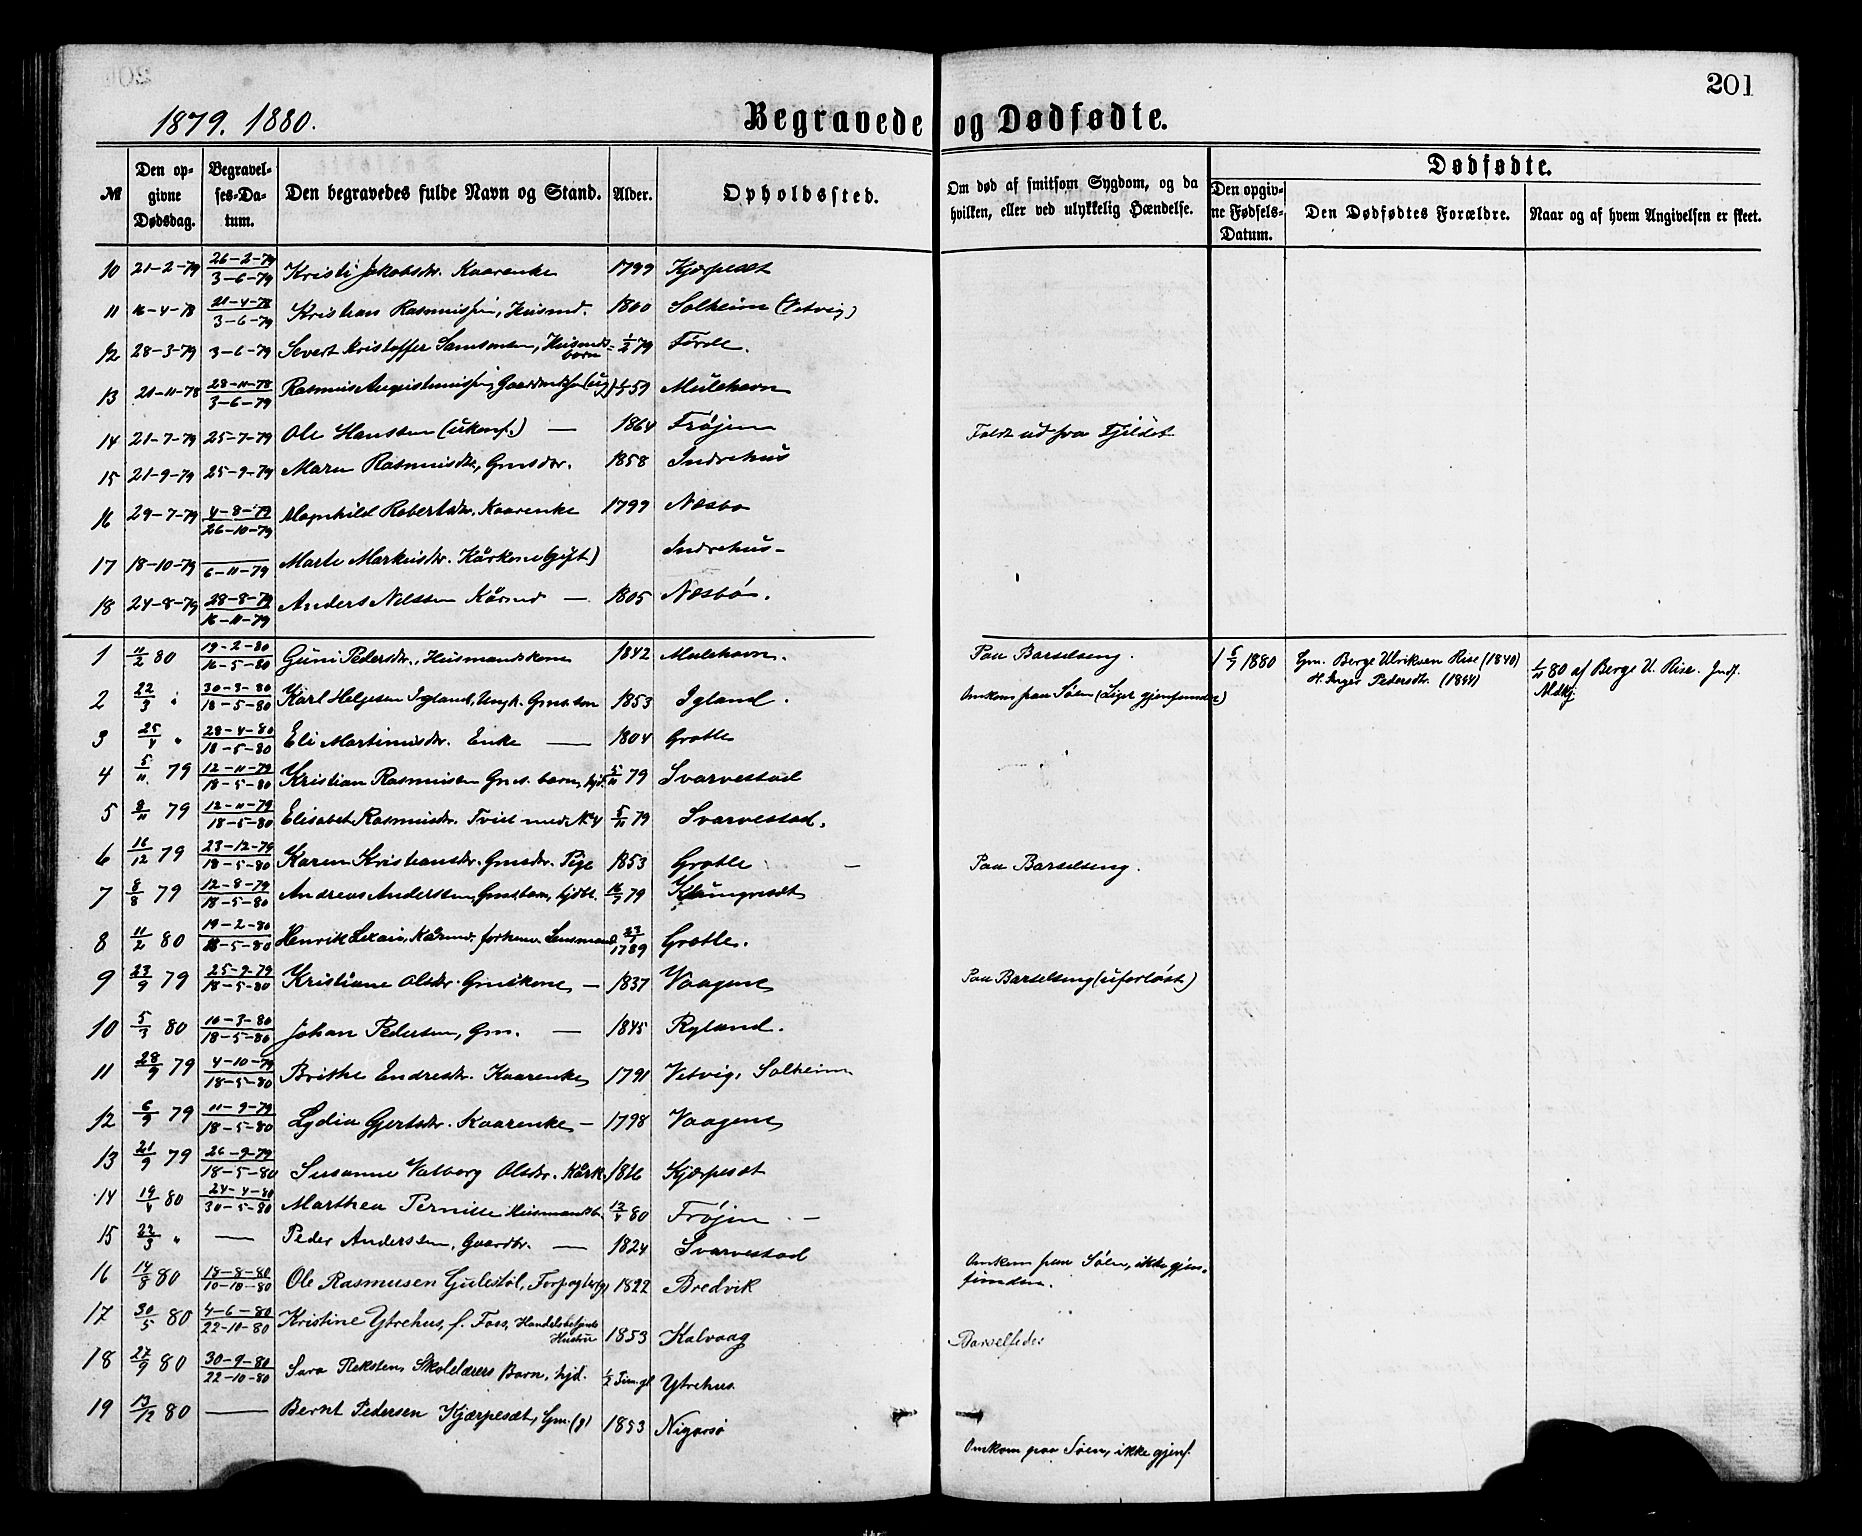 201
1879. 1880.
Begravede og Dødfødte.
№
Den opgivne Dødsdag.
Begravelses-Datum.
Den begravedes fulde Navn og Stand.
Alder.
Opholdssted.
Om død af smitsom Sygdom, og da hvilken, eller ved ulykkelig Hændelse.
Dødfødte.
Den opgivne Fødsels-Datum.
Den Dødfødtes Forældre.
Naar og af hvem Angivelsen er skeet.
10 21-2-79 26-2-79 3-6-79 Kristi Jakobsdr. Kaarenke 1799 Kjærpesæt
11 16-4-78 21-4-78 3-6-79 Kristian Rasmussen, Husmd. 1800 Solheim (Vetvig)
12 28-3-79 3-6-79 Severt Kristoffer Samsonsen, Husmds-barn 1/2 79 Førde.
13 21-11-78 28-11-78 3-6-79 Rasmus Augustinussen, 59 Mulehavn
14 21-7-79 25-7-79 Ole Hanssen (ukonf.) — 1864 Frøjen Faldt ud fra Fjeldet
15 21-9-79 25-9-79 Maren Rasmusdr., Gmsdr. 1858 Indrehus
16 29-7-79 4-8-79 26-10-79 Magnhild Robertsdr. Kaarenke 1799 Næsbø
17 18-10-79 — 6-11-79 Marte Markusdr. Kårkone (gift) Indrehus-
18 24-8-79 28-8-79 16-11-79 Anders Nilssen Kårmd — 1805 Næsbø.
1 11/2 80 19-2-80 16-5-80 Guni Pedersdr., Husmandskone 1842 Mulehavn. Paa Barselseng.
1 5/7 1880 Gm. Berge Ulriksen Rise (1840) H. Inger Pedersdr. (1844) 80 af Berge U. Rise. Indf.
2 22/3 " 30-3-80 18-5-80 Karl Helgesen Igland, Ungk. Gmssøn 1853 Igland. Omkom paa Søen (Liget gjenfundet)
3 25/4 " 28-4-80 18-5-80 Eli Martinusdr. Enke — 1804 Grotle
4 5/11 79 12-11-79 18-5-80 Kristian Rasmussen Gms. barn, hjd. 5/11 79 Svarvestad
5 8/11 79 12-11-79 18-5-80 Elisabet Rasmusdr. Tvill. med № 4 5/11 79 Svarvestad.
6 16/12 79 23-12-79 18-5-80 Karen Kristiansdr. Gmsdr. Pige 1853 Grotle — Paa Barselseng.
7 8/8 79 12-8-79 18-5-80 Andreas Anderssen, Gms. barn, hjdbt. 16/7 79 Klungresæt
8 11/2 80 19-2-80 18-5-80 Henrik Kårmd. forhenv. Lensmand 1789 Grotle.
9 23/9 79 25-9-79 18-5-80 Kristiane Olsdr. Gmskone — 1837 Vaagene Paa Barselseng (uforløst)
10 5/3 80 10-3-80 18-5-80 Johan Pedersen, Gm. — 1845 Ryland.
11 28/9 79 4-10-79 18-5-80 Brithe Endresdr. Kaarenke 1791 Vetvig, Solheim
12 6/9 79 11-9-79 18-5-80 Lydia Gjertsdr. Kaarenke — 1798 Vaagene
13 21/9 79 26-9-79 18-5-80 Susanne Valborg Olsdr. Kårk. 1816 Kjærpesæt
14 19/4 80 24-4-80 30-5-80 Marthea Pernille Husmandsb. 13/4 80 Frøjen —
15 22/3 " — Peder Anderssen, Gaardbr. — 1824 Svarvestad Omkom paa Søen, ikke gjenfunden.
16 14/8 80 18-8-80 10-10-80 Ole Rasmusen Gulestøl, 1822 Bredvik
17 30/5 80 4-6-80 22-10-80 Kristine Ytrehus, f. Foss, Handelsbetjents Hustru 1853 Kalvaag Barselfeber
18 27/9 80 30-9-80 22-10-80 Sara Reksten, Skolelærers Barn, hjd. 1/2 Time gl. Ytrehus.
19 13/12 80 — Bernt Pedersen Kjærpesæt, Gm. (g) 1853 Nigarsø Omkom paa Søen, ikke gjenf.